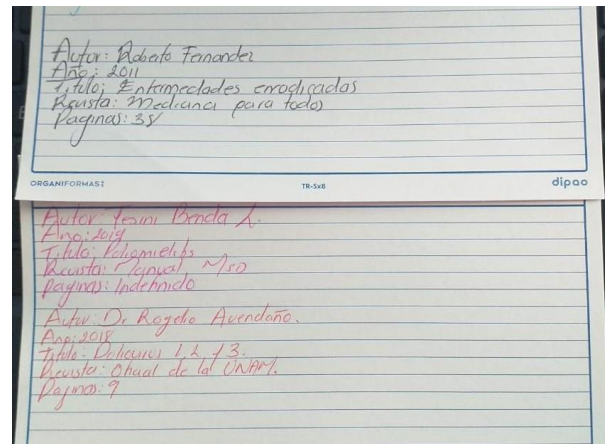 Autor: Roberto Fernandez
Año: 2011
Titulo: Enfermedades erradicadas
Revista: Medicina para todos
Paginas: 38
ORGANIFORMAS
TR-5x8
dipao
Autor: Benda L.
Año: 2019
Titulo: Poliomielitis
Revista: Manual MSD
Paginas: Indefinido
Autor: Dr Rogelio Avendaño.
Año: 2018
Titulo: Poliovirus 1, 2, y 3.
Revista: Oficial de la UNAM.
Paginas: 9